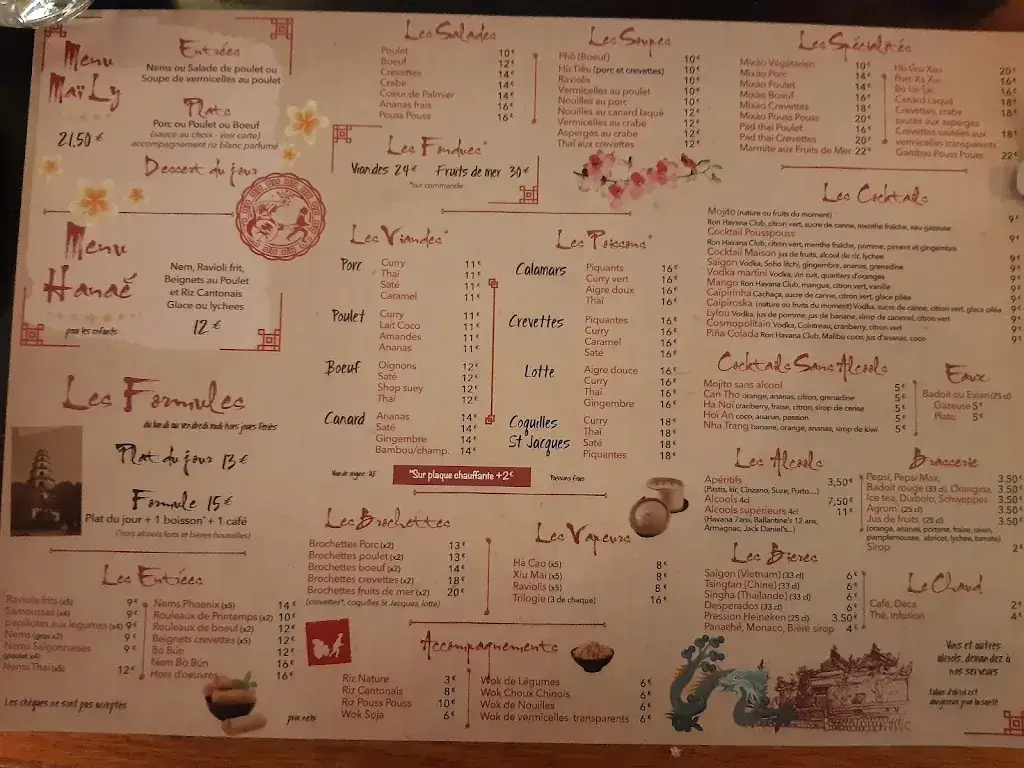 Menu
Maï Ly
21,50 €
Entrées
Nems ou Salade de poulet ou
Soupe de vermicelles au poulet
Plats
Porc ou Poulet ou Boeuf
(sauce au choix - voir carte)
accompagnement riz blanc parfumé
Dessert du jour
Menu
Hanaé
pour les enfants
Nem, Ravioli frit,
Beignets au Poulet
et Riz Cantonais
Glace ou lychees
12 €
Les Formules
du lundi au vendredi midi hors jours fériés
Plat du jour 13 €
Formule 15 €
Plat du jour + 1 boisson* + 1 café
(*hors alcools forts et bières bouteilles)
Les Entrées
Raviolis frits (x5) 9€
Samoussas (x4) 9€
papillotes aux légumes (x4) 9€
Nems (gros x2) 9€
Nems Saïgonnaises 9€
(poulet x4)
Nems Thaï (x5) 12€
Nems Phoenix (x5) 14€
Rouleaux de Printemps (x2) 10€
Rouleaux de boeuf (x2) 12€
Beignets crevettes (x5) 12€
Bò Bún 12€
Nem Bò Bún 16€
Hors d'oeuvres 16€
Les chèques ne sont pas acceptés
prix nets
Les Salades
Poulet 10€
Boeuf 12€
Crevettes 14€
Crabe 14€
Coeur de Palmier 14€
Ananas frais 16€
Pouss Pouss 16€
Les Fondues*
Viandes 24€ Fruits de mer 30€
*sur commande
Les Soupes
Phô (Boeuf) 10€
Hù Tiêu (porc et crevettes) 10€
Raviolis 10€
Vermicelles au poulet 10€
Nouilles au porc 10€
Nouilles au canard laqué 12€
Vermicelles au crabe 12€
Asperges au crabe 12€
Thaï aux crevettes 12€
Les Spécialités
Mixào Végétarien 10€
Mixào Porc 14€
Mixào Poulet 14€
Mixào Boeuf 16€
Mixào Crevettes 18€
Mixào Pouss Pouss 20€
Pad thaï Poulet 16€
Pad thaï Crevettes 20€
Marmite aux Fruits de Mer 22€
Hủ Tieu Xào 20€
Porc Xá Xíu 16€
Bò lúc lắc 16€
Canard Laqué 18€
Crevettes, crabe
sautés aux asperges 18€
Crevettes sautées aux
vermicelles transparents 18€
Gambas Pouss Pouss 22€
Les Viandes*
Porc
Curry 11€
Thaï 11€
Saté 11€
Caramel 11€
Poulet
Curry 11€
Lait Coco 11€
Amandes 11€
Ananas 11€
Boeuf
Oignons 12€
Saté 12€
Shop suey 12€
Thaï 12€
Canard
Ananas 14€
Saté 14€
Gingembre 14€
Bambou/champ. 14€
Viande origine : UE
*Sur plaque chauffante +2€
Poissons frais
Les Poissons*
Calamars
Piquants 16€
Curry vert 16€
Aigre doux 16€
Thaï 16€
Crevettes
Piquantes 16€
Curry 16€
Caramel 16€
Saté 16€
Lotte
Aigre douce 16€
Curry 16€
Thaï 16€
Gingembre 16€
Coquilles
St Jacques
Curry 18€
Thaï 18€
Saté 18€
Piquantes 18€
Les Brochettes
Brochettes Porc (x2) 13€
Brochettes poulet (x2) 13€
Brochettes boeuf (x2) 14€
Brochettes crevettes (x2) 18€
Brochettes fruits de mer (x2) 20€
(crevettes*, coquilles St Jacques, lotte)
Les Vapeurs
Hà Cao (x5) 8€
Xiu Mai (x5) 8€
Raviolis (x5) 8€
Trilogie (3 de chaque) 16€
Accompagnements
Riz Nature 3€
Riz Cantonais 8€
Riz Pouss Pouss 10€
Wok Soja 6€
Wok de Légumes 6€
Wok Choux Chinois 6€
Wok de Nouilles 6€
Wok de vermicelles transparents 6€
Les Cocktails
Mojito (nature ou fruits du moment) 9€
Ron Havana Club, citron vert, sucre de canne, menthe fraîche, eau gazeuse
Cocktail Pousspouss 9€
Ron Havana Club, citron vert, menthe fraîche, pomme, piment et gingembre
Cocktail Maison jus de fruits, alcool de riz, lychee 9€
Saïgon Vodka, Soho litchi, gingembre, ananas, grenadine 9€
Vodka martini Vodka, vin cuit, quartiers d'oranges 9€
Mango Ron Havana Club, mangue, citron vert, vanille 9€
Caïpirinha Cachaça, sucre de canne, citron vert, glace pilée 9€
Caïpiroska (nature ou fruits du moment) Vodka, sucre de canne, citron vert, glace pilée 9€
Lylou Vodka, jus de pomme, jus de banane, sirop de caramel, citron vert 9€
Cosmopolitain Vodka, Cointreau, cranberry, citron vert 9€
Piña Colada Ron Havana Club, Malibu coco, jus d'ananas, coco 9€
Cocktails Sans Alcools
Mojito sans alcool 5€
Can Tho orange, ananas, citron, grenadine 5€
Ha Noï cranberry, fraise, citron, sirop de cerise 5€
Hoï An coco, ananas, passion 5€
Nha Trang banane, orange, ananas, sirop de kiwi 5€
Eaux
Badoit ou Evian (75 cl)
Gazeuse 5€
Plate 5€
Les Alcools
Apéritifs 3,50€
(Pastis, kir, Cinzano, Suze, Porto...)
Alcools 4cl 7,50€
Alcools supérieurs 4cl 11€
(Havana 7ans, Ballantine's 12 ans,
Armagnac, Jack Daniel's...)
Brasserie
Pepsi, Pepsi Max, 3.50€
Badoit rouge (33 cl), Orangina, 3.50€
Ice tea, Diabolo, Schweppes 3.50€
Agrum' (25 cl) 3.50€
Jus de fruits (25 cl) 3.50€
(orange, ananas, pomme, fraise, raisin,
pamplemousse, abricot, lychee, tomate)
Sirop 2€
Les Bières
Saïgon (Vietnam) (33 cl) 6€
Tsingtao (Chine) (33 cl) 6€
Singha (Thaïlande) (33 cl) 6€
Desperados (33 cl) 6€
Pression Heineken (25 cl) 3.50€
Panaché, Monaco, Bière sirop 4€
Le Chaud
Café, Déca 2€
Thé, Infusion 4€
Vins et autres
alcools, demandez à
nos serveurs
l'abus d'alcool est
dangereux pour la santé